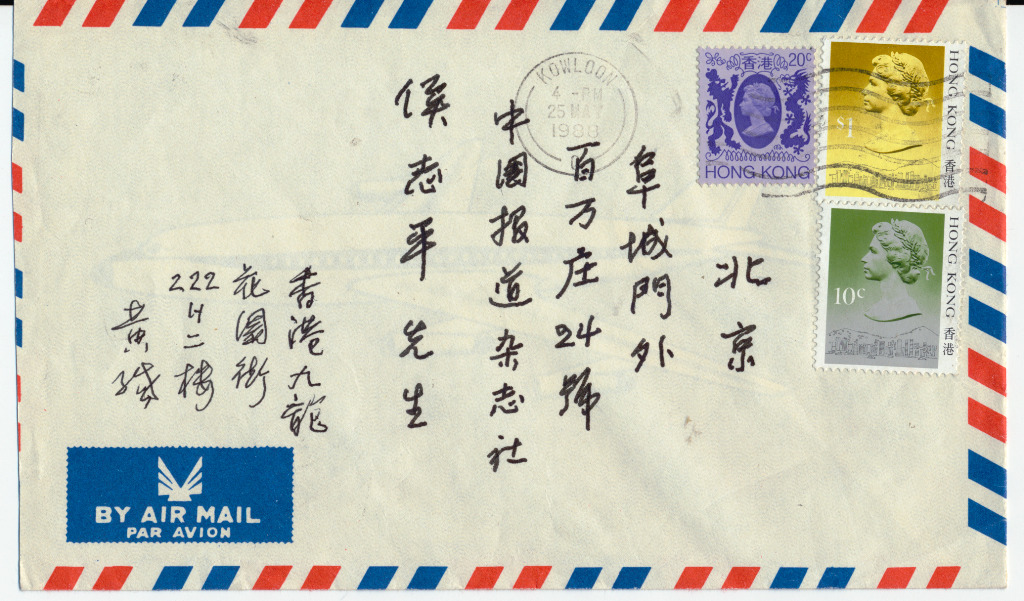 KOWLOON
4 -PM
25 MAY
1988
香港 20c
HONG KONG
$1
HONG KONG 香港
10c
HONG KONG 香港
北京
阜城門外
百万庄24號
中國报道杂志社
侯志平 先生
香港九龍
花園街
222 二樓
黄缄
BY AIR MAIL
PAR AVION